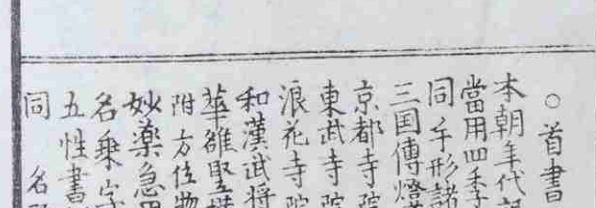 ○首書
本朝年代記
當用四季
同手形諸
三国傳燈
京都寺院
東武寺院
浪花寺院
和漢武将
華雒竪横
附方位物
妙薬急
名乗字
五性書
同名